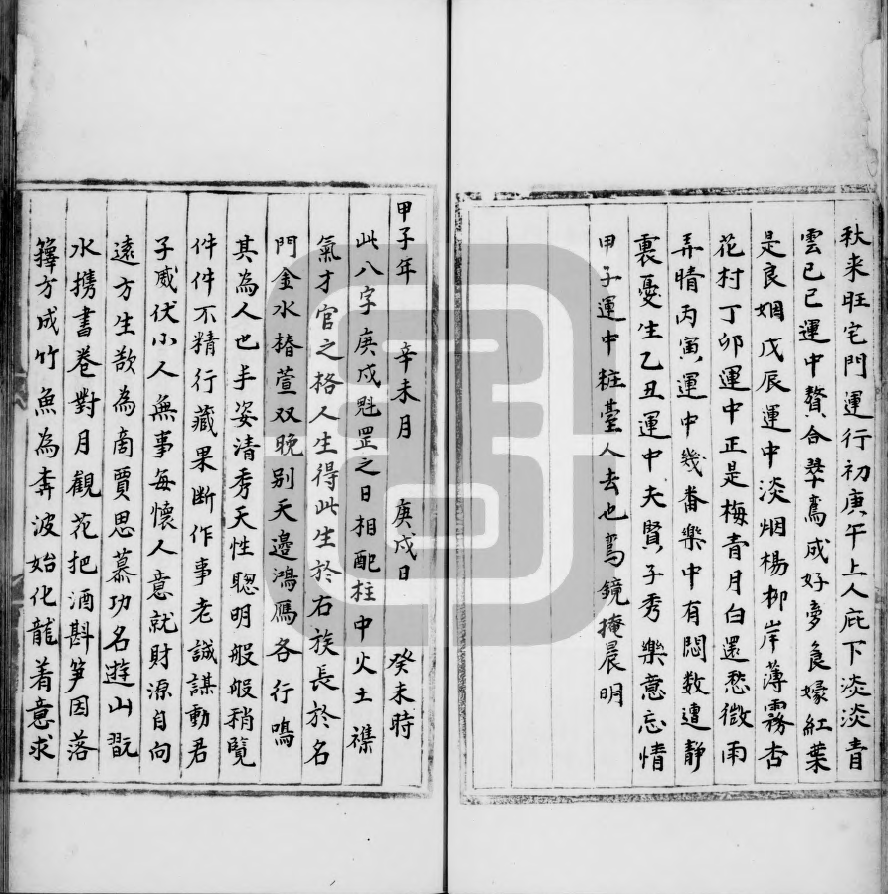 秋来旺宅門運行初庚午上人庇下淡淡青
雲己巳運中贅合擧鸞成好夢良嫁紅葉
是良姻戊辰運中淡烟楊柳岸薄霧杏
花村丁卯運中正是梅青月白還愁微雨
弄晴丙寅運中幾番樂中有悶数遭靜
裏憂生乙丑運中夫賢子秀樂意忘情
甲子運中粧臺人去也鸞鏡掩晨明
甲子年 辛未月 庚戌日 癸未時
此八字庚戌魁罡之日相配柱中火土襍
氣才官之格人生得此生於右族長於名
門金水椿萱双晚别天邊鴻鴈各行鳴
其為人也丰姿清秀天性聦明般般稍覽
件件不精行藏果断作事老誠謀動君
子威伏小人無事每懷人意就財源自向
遠方生欲為啇賈思慕功名遊山翫
水携書卷對月觀花把酒斟笋因落
籜方成竹魚為奔波始化龍着意求